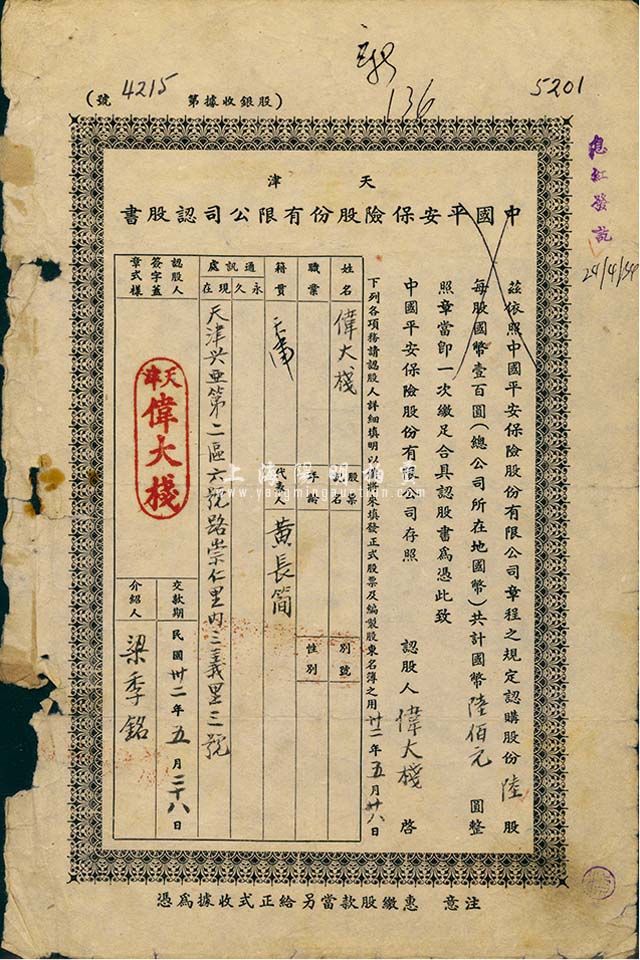 136
5201
(股銀收據第 4215 號)
息紅發訖
24/4/34
天津
中國平安保險股份有限公司認股書
茲依照中國平安保險股份有限公司章程之規定認購股份陸股
每股國幣壹百圓(總公司所在地國幣)共計國幣陸佰元圓整
照章當卽一次繳足合具認股書爲憑此致
中國平安保險股份有限公司存照 認股人 偉大棧 啓
下列各項務請認股人詳細填明以備將來填發正式股票及編製股東名簿之用 卅二年五月廿八日
姓名 偉大棧 股票記名 別號
職業 年齡 性別
籍貫 天津 代表人 黃長簡
通訊處 永久 現在 天津興亞第二區六號路崇仁里內三義里三號
認股人簽字蓋章式樣 交款期 民國卅二年五月二十八日
天津
偉大棧
介紹人 梁季銘
上海陽明拍賣
www.yangmingauction.com
注意 惠繳股款當另給正式收據爲憑